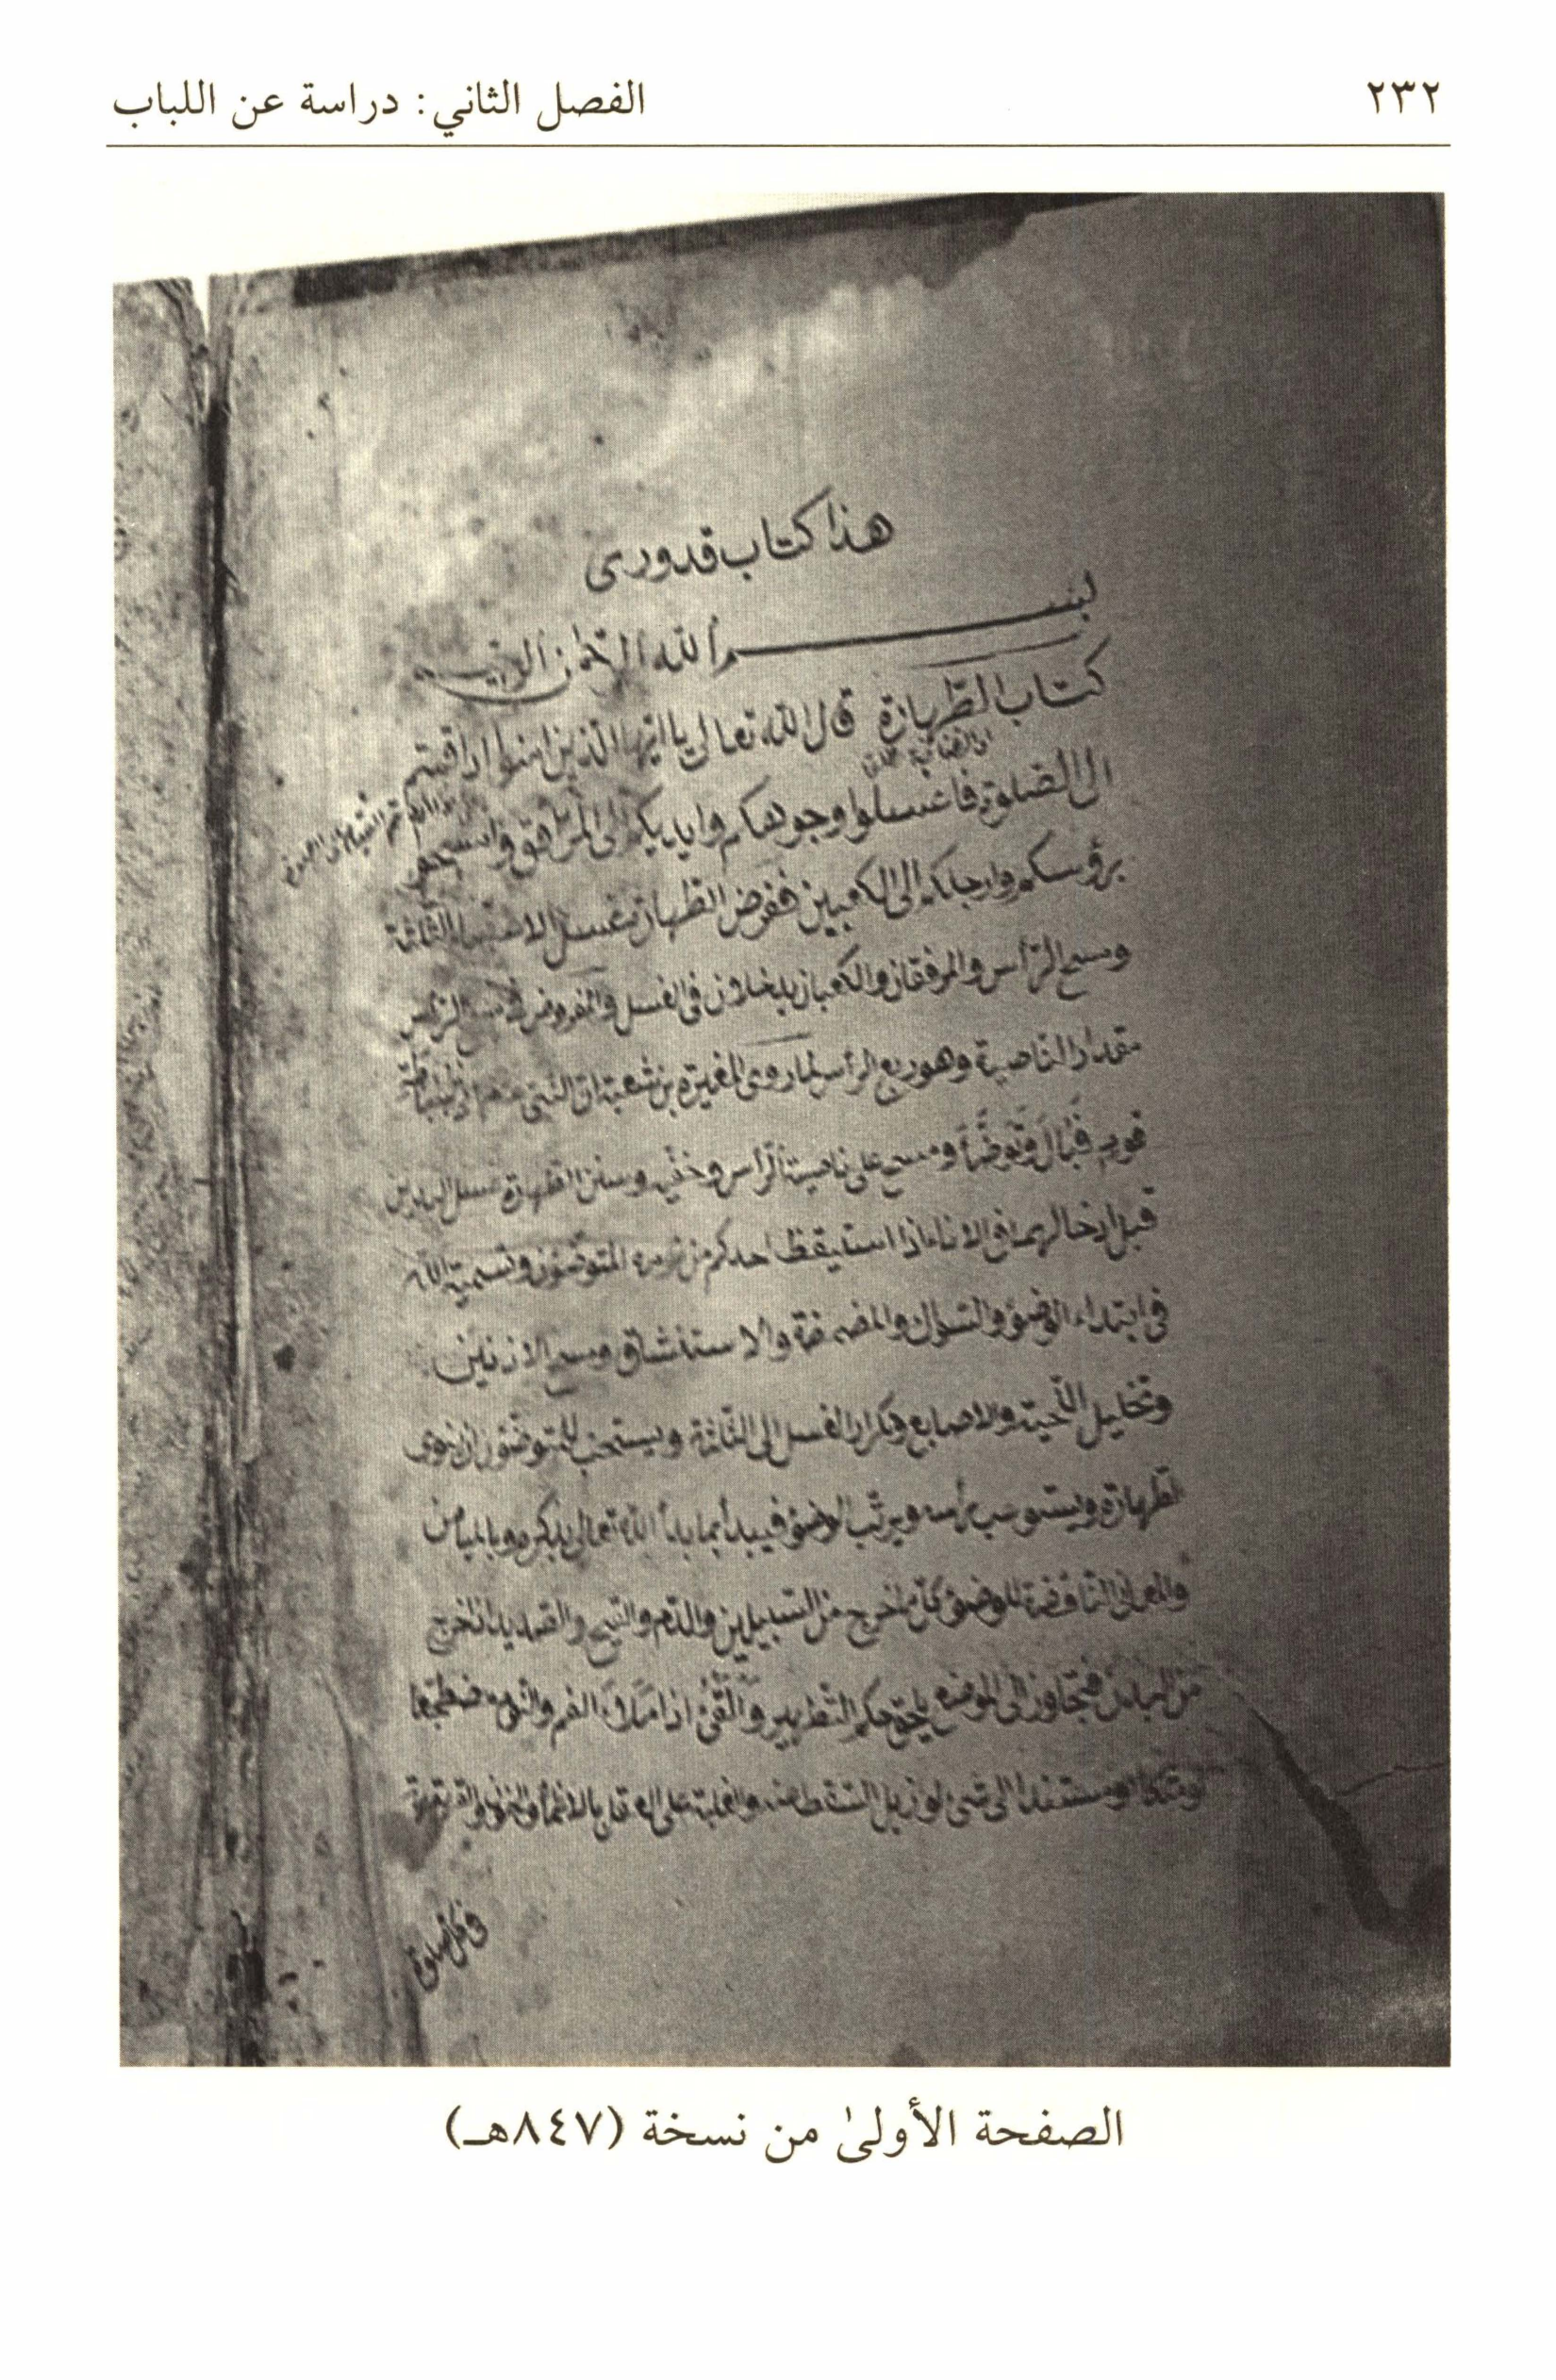 ٢٣٢
الفصل الثاني: دراسة عن اللباب
هذا كتاب قدورى
بسم الله الرحمن الرحيم
كتاب الطهارة قال الله تعالى يا ايها الذين امنوا اذا قمتم
الى الصلوة فاغسلوا وجوهكم وايديكم الى المرافق وامسحوا
برؤسكم وارجلكم الى الكعبين ففرض الطهارة غسل الاعضاء الثلثة
ومسح الرأس والمرفقان والكعبان يدخلان فى الغسل والمفروض فى مسح الرأس
مقدار الناصية وهو ربع الرأس لما روى المغيرة بن شعبة ان النبى سباطة
قوم فبال وتوضأ ومسح على ناصية الرأس وخفيه وسنن الطهارة غسل اليدين
قبل ادخالهما فى الاناء اذا استيقظ احدكم من نومه المتوضئ وتسمية الله
فى ابتداء الوضوء والسواك والمضمضة والاستنشاق ومسح الاذنين
وتخليل اللحية والاصابع وتكرار الغسل الى الثلثة ويستحب للمتوضئ ان ينوى
الطهارة ويستوعب رأسه ويرتب الوضوء فيبدأ بما بدأ الله تعالى بذكره وبالميامن
والمعانى الناقضة للوضوء كل ما خرج من السبيلين والدم والقيح والصديد اذا خرج
من البدن فتجاوز الى الموضع يلحقه حكم التطهير والقئ اذا ملأ الفم والنوم مضطجعا
او متكئا او مستندا الى شئ لو ازيل لسقط عنه والغلبة على العقل بالاغماء والجنون والقهقهة
فى كل صلوة
الصفحة الأولىٰ من نسخة (٨٤٧هـ)